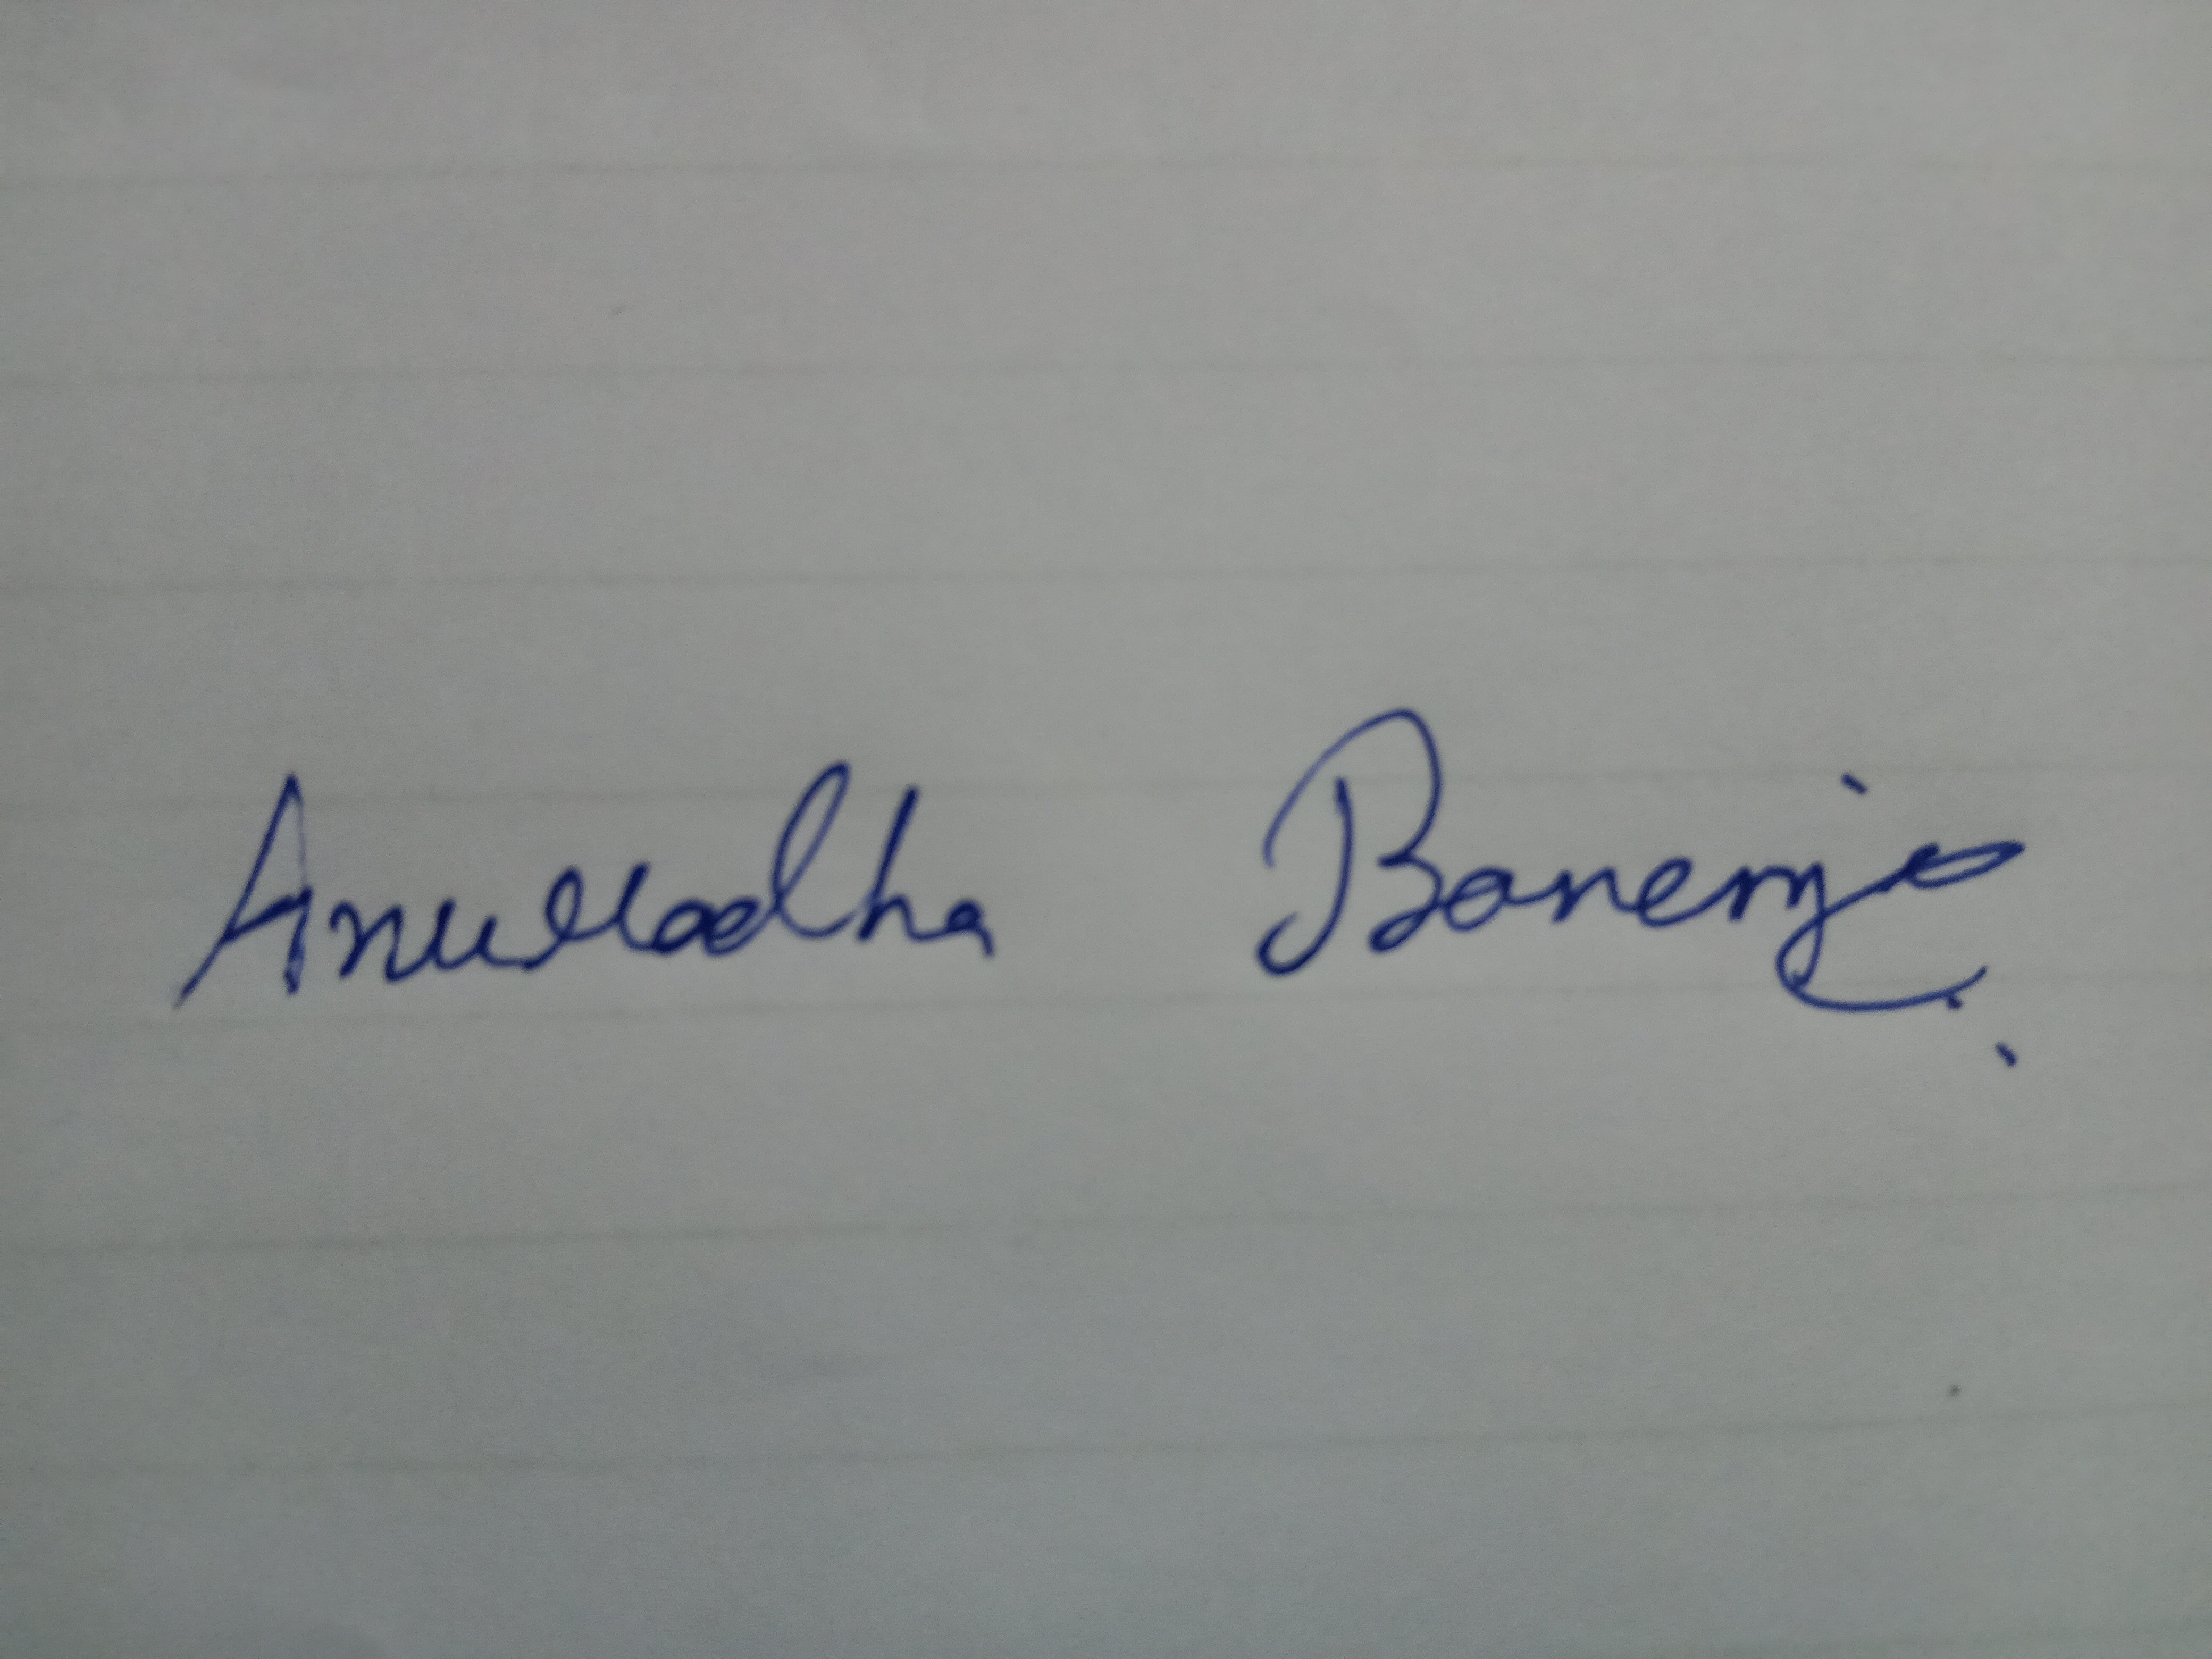 Anuradha Banerje